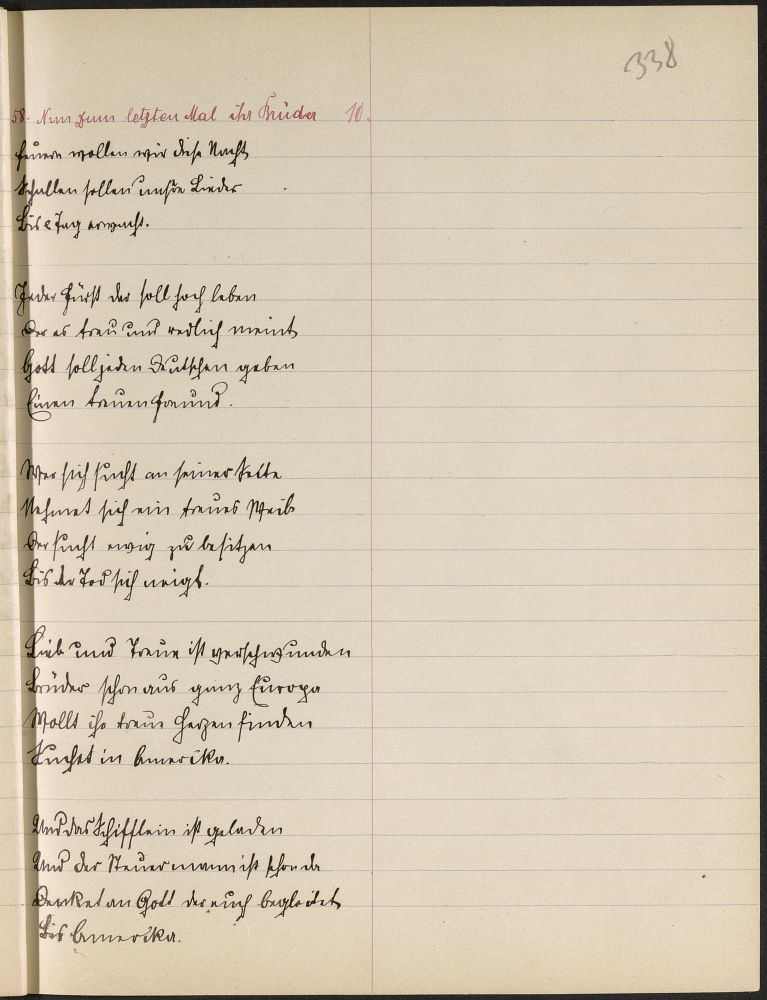 338
58. Nun zum letzten Mal ihr Brüder 10.
feuern wollen wir diese Nacht
Schallen sollen unsre Lieder
Bis e Tag erwacht.
Jeder Fürst der soll hoch leben
Der es treu und redlich meint
Gott soll jeden Deutschen geben
Einen treuen Freund.
Wer sich sucht an seiner Seite
Nehmet sich ein treues Weib
Der sucht ewig zu besitzen
Bis der Tod sich neigt.
Lieb und Treue ist verschwunden
Brüder schon aus ganz Europa
Wollt ihr treue Herzen finden
Suchet in Amerika.
Und das Schifflein ist geladen
Und der Steuermann ist schon da
Denket an Gott der euch begleitet
Bis Amerika.